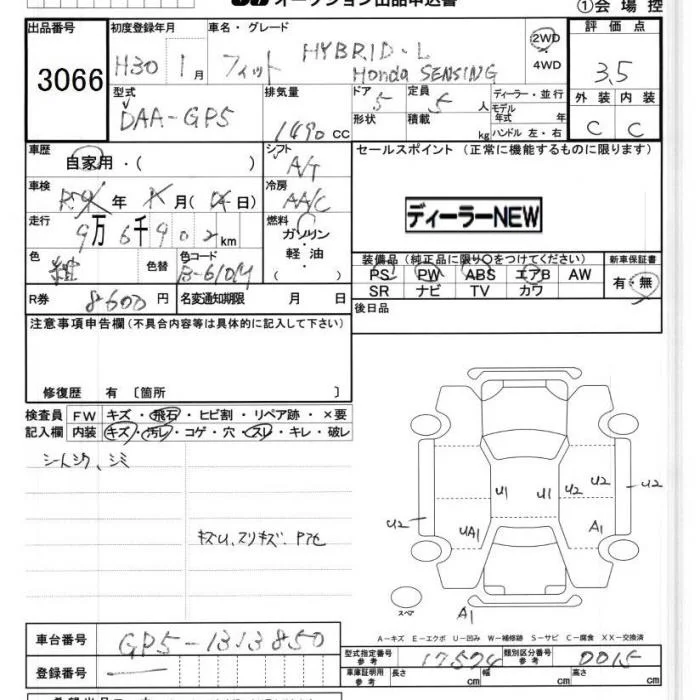 オークション出品申込書
①会場控
出品番号 3066
初度登録年月 H30 1月
車名・グレード フィット HYBRID・L Honda SENSING
2WD
・
4WD
評価点 3.5
外装 内装
C C
型式 DAA-GP5
排気量 1490 CC
ドア 5
形状
定員 5 人
積載 kg
ディーラー・並行
モデル年式 年
ハンドル 左・右
車歴 自家用・( )
シフト A/T
セールスポイント (正常に機能するものに限ります)
車検 年 月( 日)
冷房 AA/C
ディーラーNEW
走行 9万6千902km
燃料 ガソリン・軽油・( )
色 紺 色替 色コード B-610M
装備品(純正品に限り○をつけてください)
新車保証書
PS PW ABS エアB AW
有・無
SR ナビ TV カワ
R券 8600円 名変通知期限 月 日
後日品
注意事項申告欄(不具合内容等は具体的に記入して下さい)
修復歴 有〔箇所 〕
検査員 FW キズ・飛石・ヒビ割・リペア跡・×要
記入欄 内装 キズ・汚レ・コゲ・穴・スレ・キレ・破レ
シートシワ、シミ
キズU、スリキズ、
U1 U1 U2 U2
U2
U2
UA1 A1
スペア
A1
A-キズ E-エクボ U-凹み W-補修跡 S-サビ C-腐食 XX-交換済
車台番号 GP5-1313850
登録番号 —
型式指定番号 参考 17574
類別区分番号 参考 0015
車庫証明用 参考 長さ cm 幅 cm 高さ cm